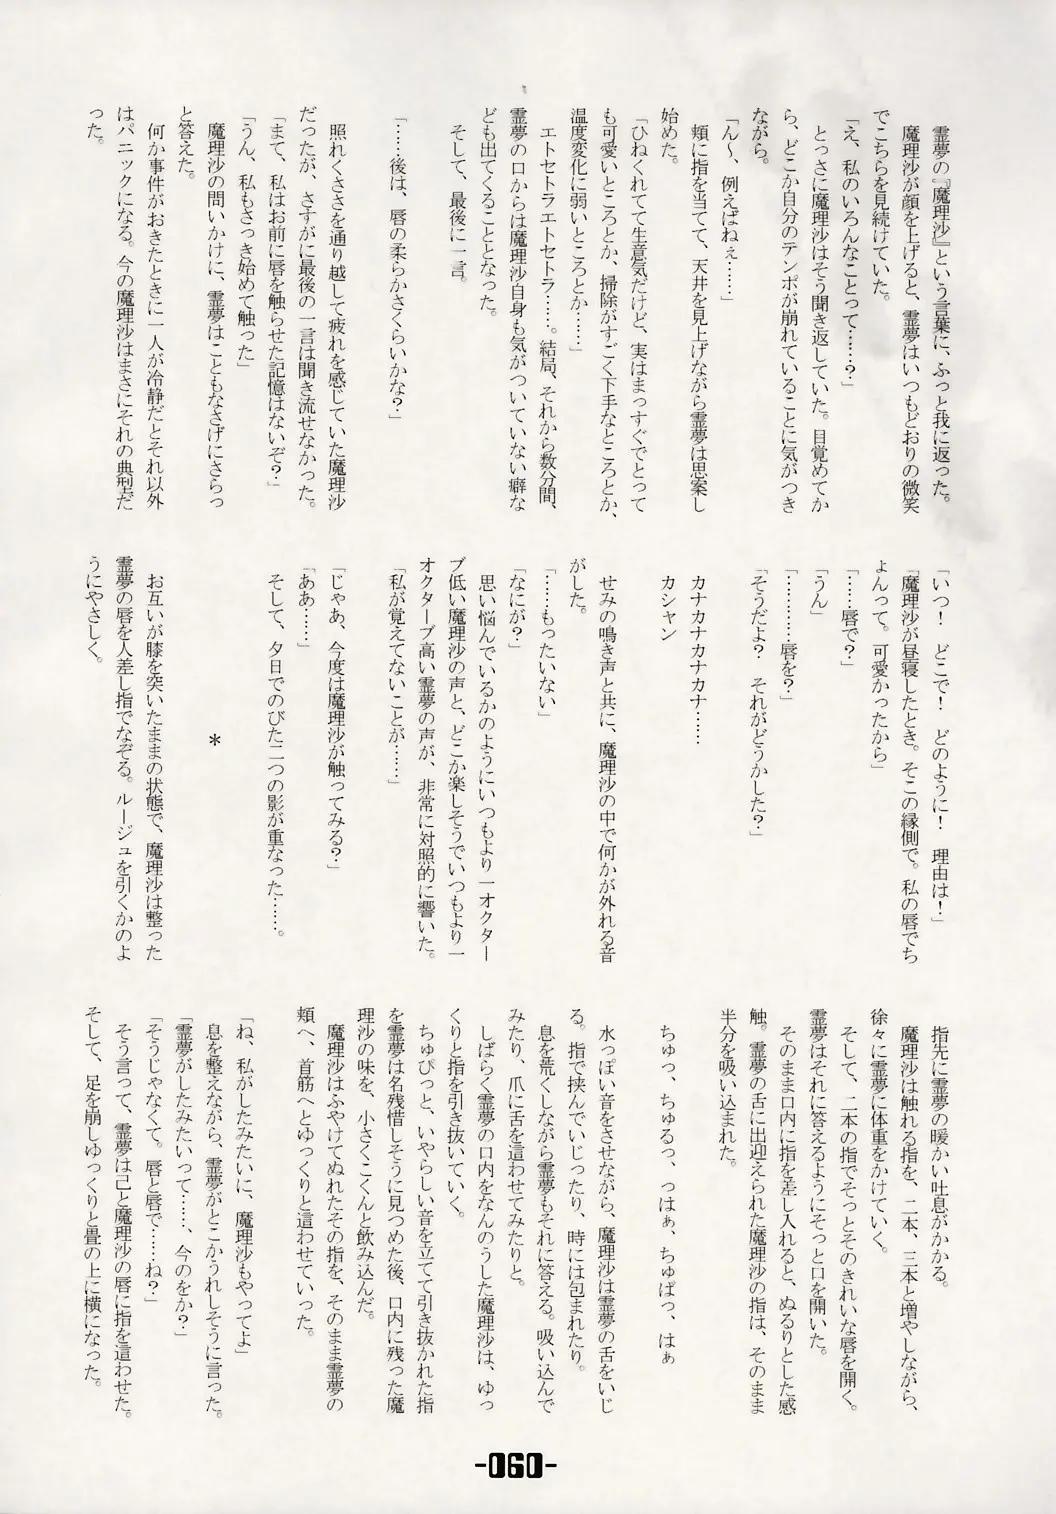 霊夢の『魔理沙』という言葉に、ふっと我に返った。
魔理沙が顔を上げると、霊夢はいつもどおりの微笑
でこちらを見続けていた。
「え、私のいろんなことって………？」
とっさに魔理沙はそう聞き返していた。目覚めてか
ら、どこか自分のテンポが崩れていることに気がつき
ながら。
「ん～、例えばねぇ……」
頬に指を当てて、天井を見上げながら霊夢は思案し
始めた。
「ひねくれてて生意気だけど、実はまっすぐでとって
も可愛いところとか、掃除がすごく下手なところとか、
温度変化に弱いところとか……」
エトセトラエトセトラ……。結局、それから数分間、
霊夢の口からは魔理沙自身も気がついていない癖な
ども出てくることとなった。
そして、最後に一言。
「……後は、唇の柔らかさくらいかな？」
照れくささを通り越して疲れを感じていた魔理沙
だったが、さすがに最後の一言は聞き流せなかった。
「まて、私はお前に唇を触らせた記憶はないぞ？」
「うん、私もさっき始めて触った」
魔理沙の問いかけに、霊夢はこともなさげにさらっ
と答えた。
何か事件がおきたときに一人が冷静だとそれ以外
はパニックになる。今の魔理沙はまさにそれの典型だ
った。
「いつ！　どこで！　どのように！　理由は！」
「魔理沙が昼寝したとき。そこの縁側で。私の唇でち
ょんって。可愛かったから」
「……唇で？」
「うん」
「…………唇を？」
「そうだよ？　それがどうかした？」
カナカナカナカナ……
カシャン
せみの鳴き声と共に、魔理沙の中で何かが外れる音
がした。
「……もったいない」
「なにが？」
思い悩んでいるかのようにいつもより一オクター
ブ低い魔理沙の声と、どこか楽しそうでいつもより一
オクターブ高い霊夢の声が、非常に対照的に響いた。
「私が覚えてないことが……」
「じゃあ、今度は魔理沙が触ってみる？」
「ああ……」
そして、夕日でのびた二つの影が重なった……。
＊
お互いが膝を突いたままの状態で、魔理沙は整った
霊夢の唇を人差し指でなぞる。ルージュを引くかのよ
うにやさしく。
指先に霊夢の暖かい吐息がかかる。
魔理沙は触れる指を、二本、三本と増やしながら、
徐々に霊夢に体重をかけていく。
そして、二本の指でそっとそのきれいな唇を開く。
霊夢はそれに答えるようにそっと口を開いた。
そのまま口内に指を差し入れると、ぬるりとした感
触。霊夢の舌に出迎えられた魔理沙の指は、そのまま
半分を吸い込まれた。
ちゅっ、ちゅるっ、っはぁ、ちゅぱっ、はぁ
水っぽい音をさせながら、魔理沙は霊夢の舌をいじ
る。指で挟んでいじったり、時には包まれたり。
息を荒くしながら霊夢もそれに答える。吸い込んで
みたり、爪に舌を這わせてみたりと。
しばらく霊夢の口内をなんのうした魔理沙は、ゆっ
くりと指を引き抜いていく。
ちゅぴっと、いやらしい音を立てて引き抜かれた指
を霊夢は名残惜しそうに見つめた後、口内に残った魔
理沙の味を、小さくこくんと飲み込んだ。
魔理沙はふやけてぬれたその指を、そのまま霊夢の
頬へ、首筋へとゆっくりと這わせていった。
「ね、私がしたみたいに、魔理沙もやってよ」
息を整えながら、霊夢がどこかうれしそうに言った。
「霊夢がしたみたいって……、今のをか？」
「そうじゃなくて。唇と唇で……ね？」
そう言って、霊夢は己と魔理沙の唇に指を這わせた。
そして、足を崩しゆっくりと畳の上に横になった。
-060-